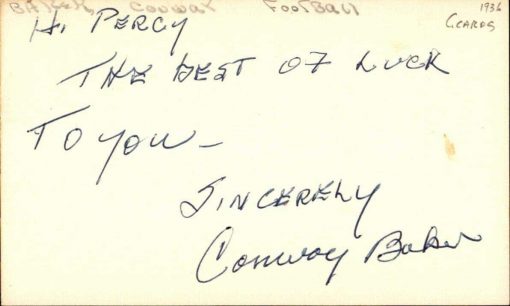 BAKER, CONWAY FOOTBALL 1936
CCARDS
Hi PERCY
THE BEST OF LUCK
TO YOU —
SINCERELY
Conway Baker